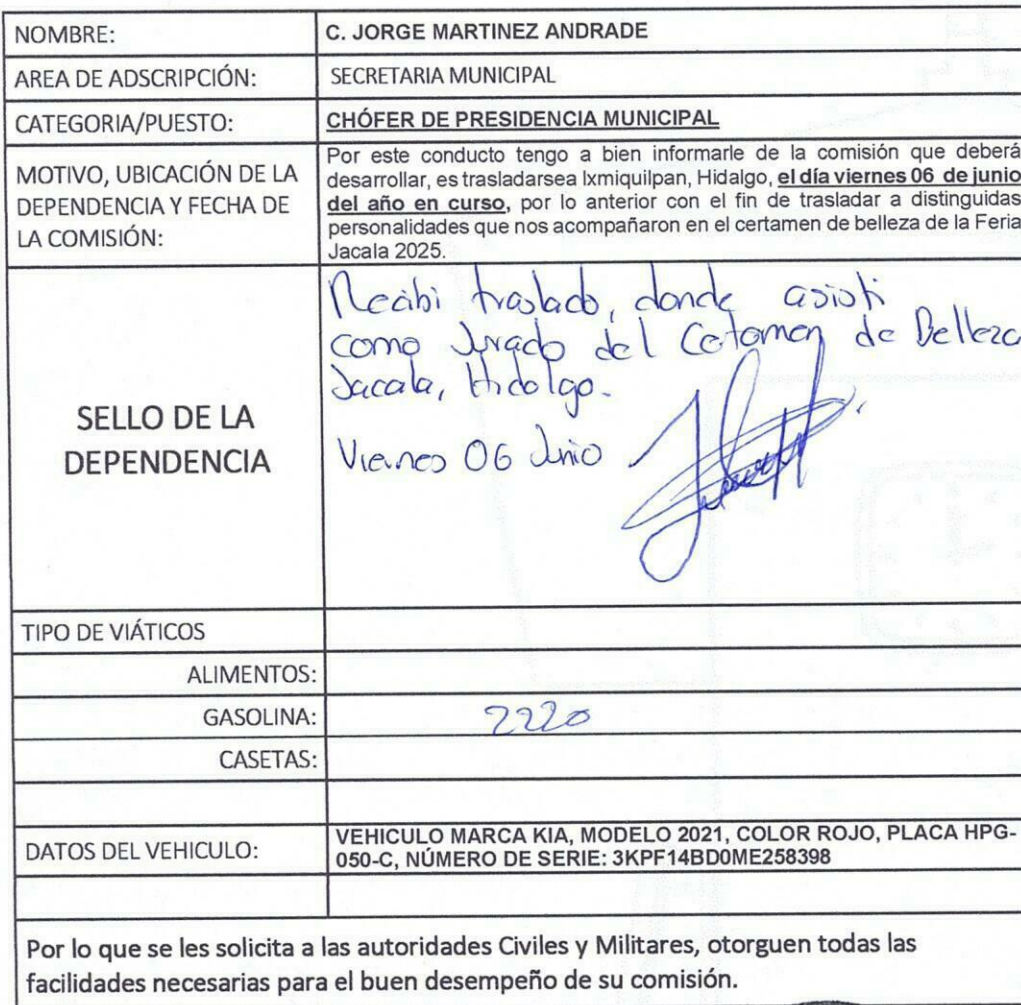 NOMBRE: C. JORGE MARTINEZ ANDRADE
AREA DE ADSCRIPCIÓN: SECRETARIA MUNICIPAL
CATEGORIA/PUESTO: CHÓFER DE PRESIDENCIA MUNICIPAL
MOTIVO, UBICACIÓN DE LA
DEPENDENCIA Y FECHA DE
LA COMISIÓN:
Por este conducto tengo a bien informarle de la comisión que deberá
desarrollar, es trasladarsea Ixmiquilpan, Hidalgo, el día viernes 06 de junio
del año en curso, por lo anterior con el fin de trasladar a distinguidas
personalidades que nos acompañaron en el certamen de belleza de la Feria
Jacala 2025.
SELLO DE LA
DEPENDENCIA
Recibi traslado, donde asisti
como Jurado del Cetamen de Belleza
Jacala, Hidalgo.
Viernes 06 Junio
TIPO DE VIÁTICOS
ALIMENTOS:
GASOLINA: 2220
CASETAS:
DATOS DEL VEHICULO:
VEHICULO MARCA KIA, MODELO 2021, COLOR ROJO, PLACA HPG-
050-C, NÚMERO DE SERIE: 3KPF14BD0ME258398
Por lo que se les solicita a las autoridades Civiles y Militares, otorguen todas las
facilidades necesarias para el buen desempeño de su comisión.